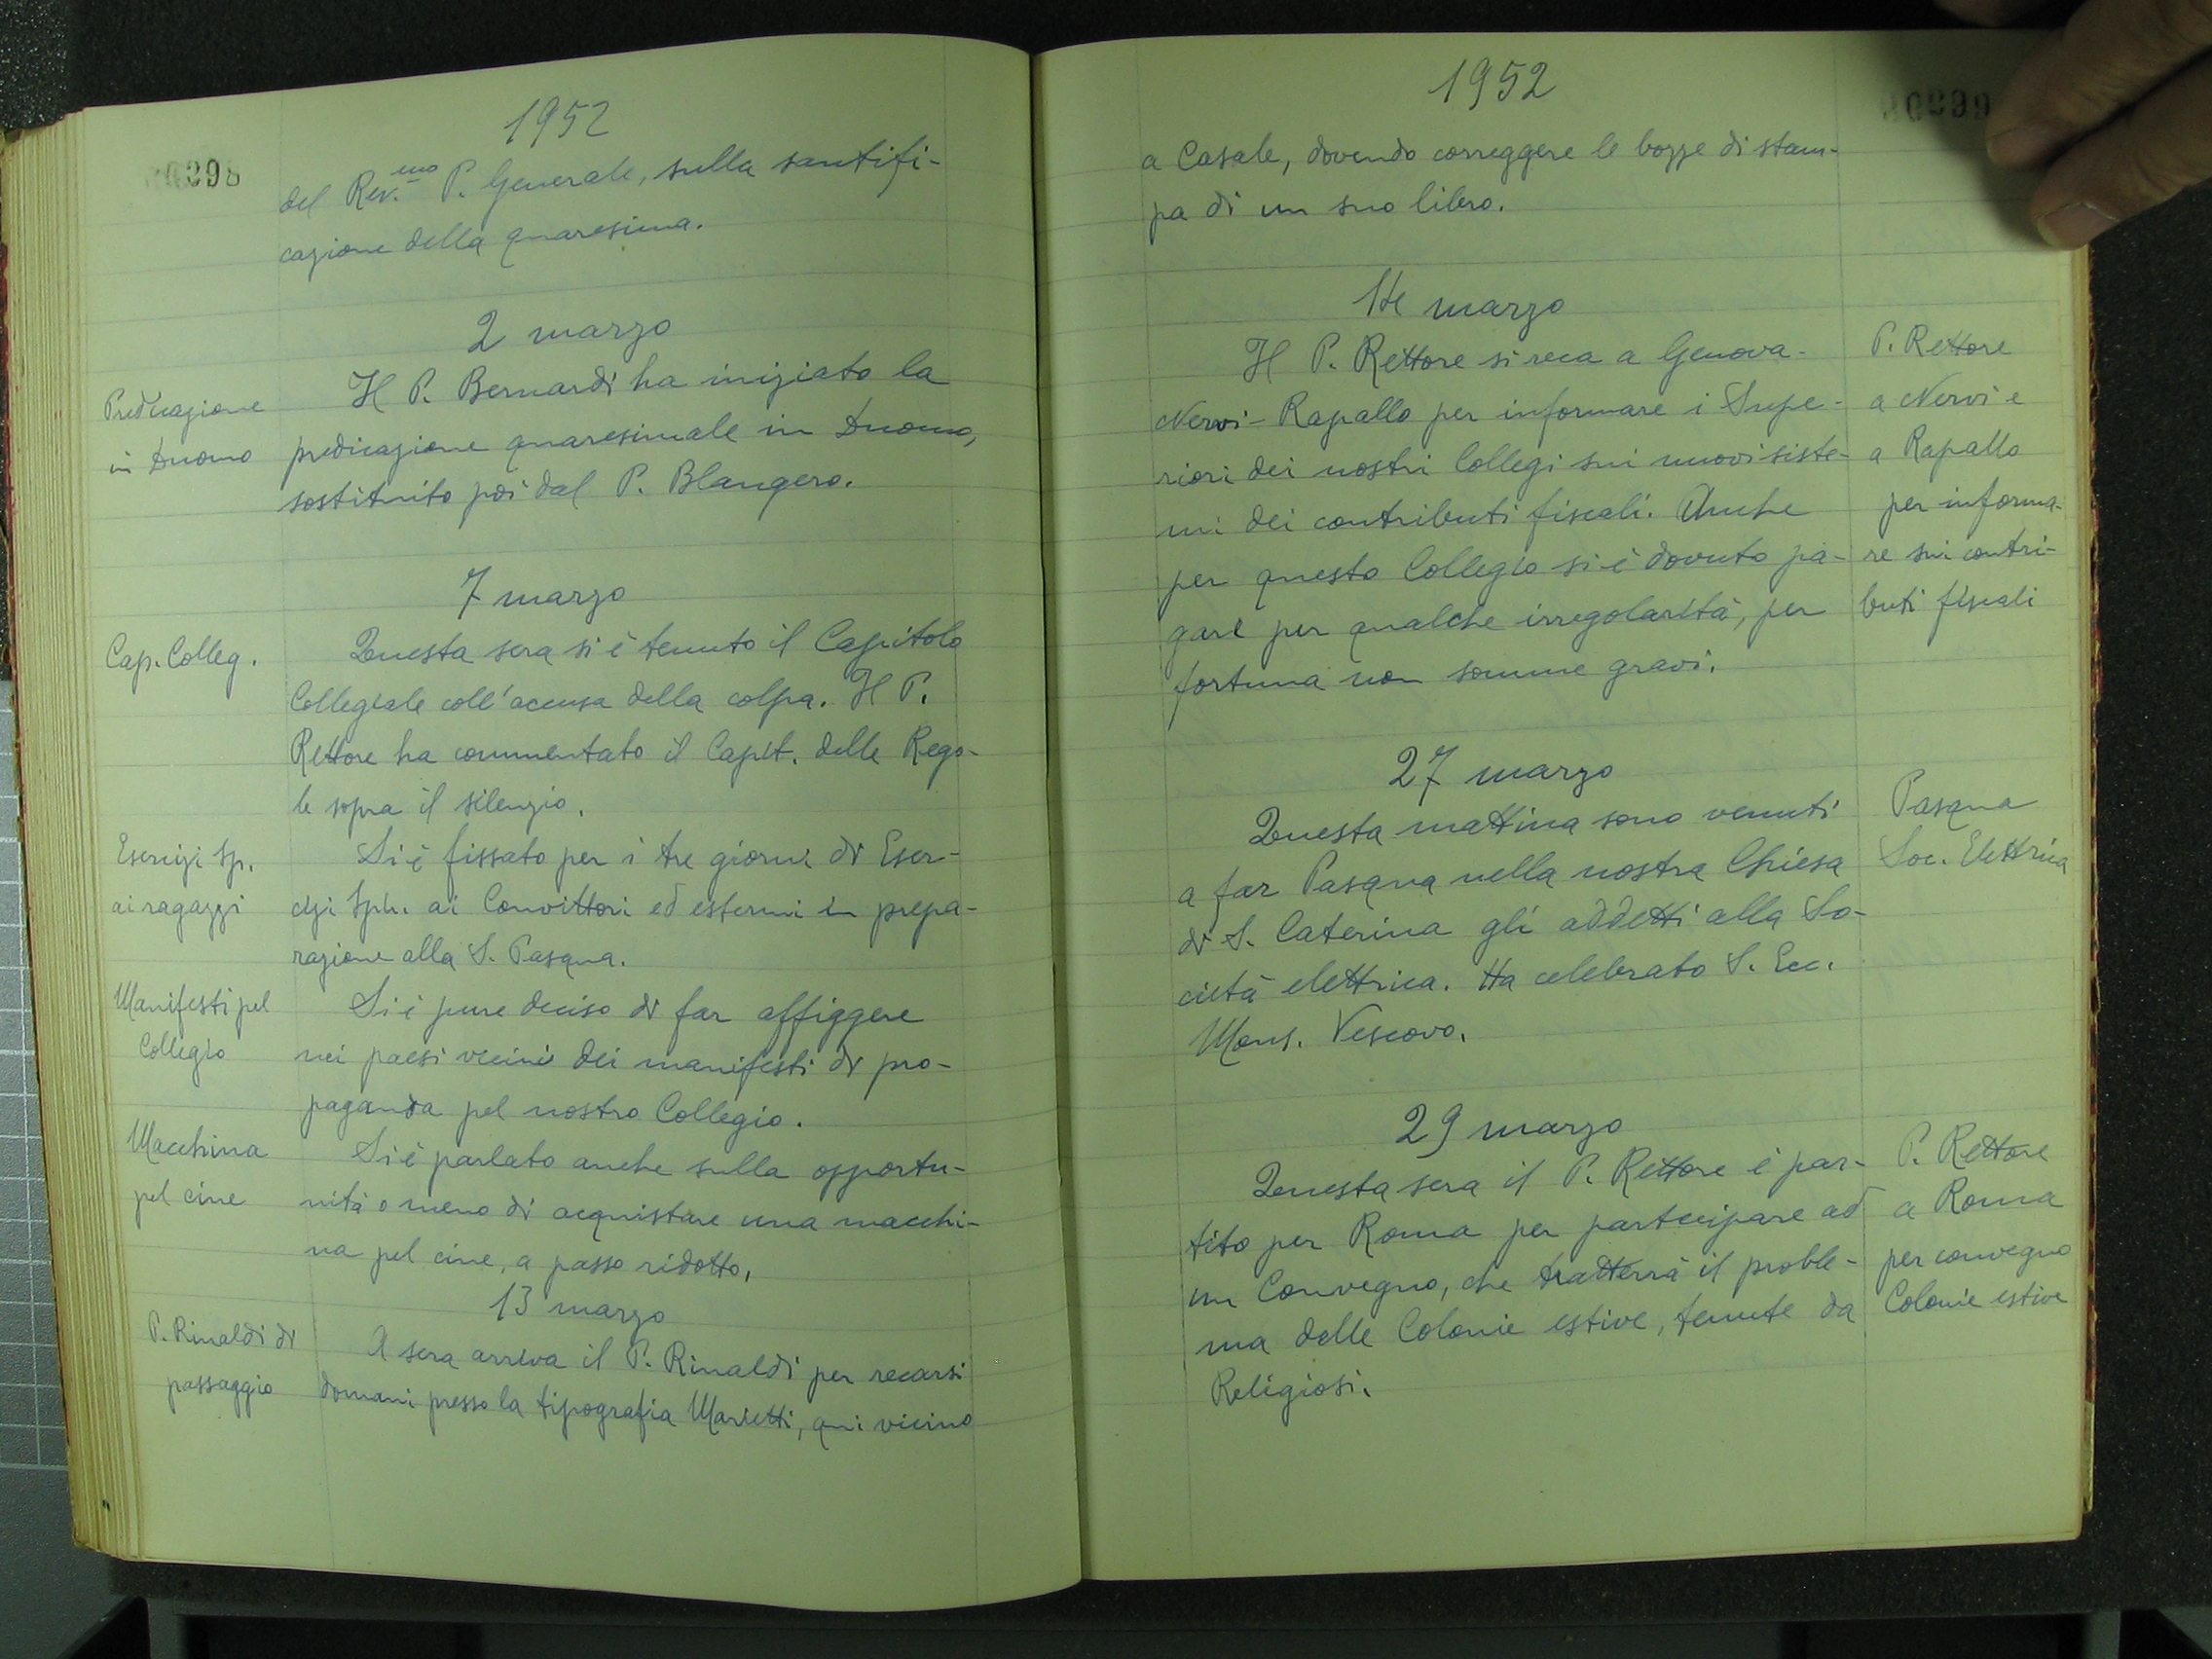 1952
del Rev.mo P. Generale, sulla santifi-
cazione della quaresima.
2 marzo
Predicazione
in Duomo
Il P. Bernardi ha iniziato la
predicazione quaresimale in Duomo,
sostituito poi dal P. Blangero.
7 marzo
Cap. Colleg.
Questa sera si è tenuto il Capitolo
Collegiale coll'accusa della colpa. Il P.
Rettore ha commentato il Capit. delle Rego-
le sopra il silenzio.
Esercizi Sp.
ai ragazzi
Si è fissato per i tre giorni di Eser-
cizi Spir. ai Convittori ed esterni in prepa-
razione alla S. Pasqua.
Manifesti pel
Collegio
Si è pure deciso di far affiggere
nei paesi vicini dei manifesti di pro-
paganda pel nostro Collegio.
Macchina
pel cine
Si è parlato anche sulla opportu-
nità o meno di acquistare una macchi-
na pel cine, a passo ridotto.
13 marzo
P. Rinaldi di
passaggio
A sera arriva il P. Rinaldi per recarsi
domani presso la tipografia Marietti, qui vicino
1952
a Casale, dovendo correggere le bozze di stam-
pa di un suo libro.
14 marzo
Il P. Rettore si reca a Genova-
Nervi-Rapallo per informare i Supe-
riori dei nostri Collegi sui nuovi siste-
mi dei contributi fiscali. Anche
per questo Collegio si è dovuto pa-
gare per qualche irregolarità, per
fortuna non somme gravi.
P. Rettore
a Nervi e
a Rapallo
per informa-
re sui contri-
buti fiscali
27 marzo
Questa mattina sono venuti
a far Pasqua nella nostra Chiesa
di S. Caterina gli addetti alla So-
cietà elettrica. Ha celebrato S. Ecc.
Mons. Vescovo.
Pasqua
Soc. Elettrica
29 marzo
Questa sera il P. Rettore è par-
tito per Roma per partecipare ad
un Convegno, che tratterrà il proble-
ma delle Colonie estive, tenute da
Religiosi.
P. Rettore
a Roma
per convegno
Colonie estive